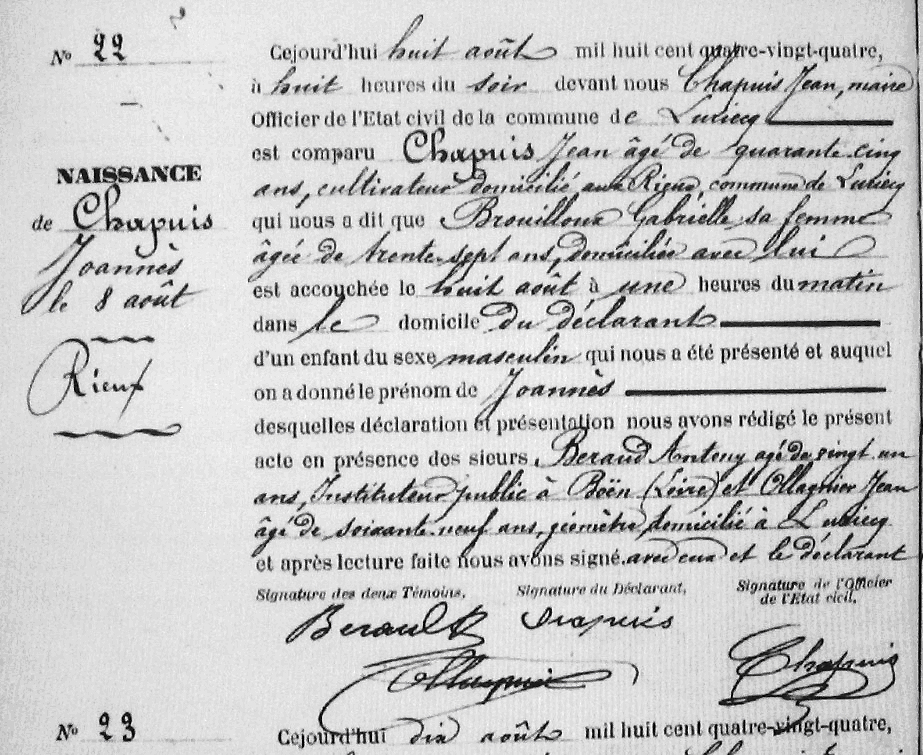 N° 22
NAISSANCE
de Chapuis
Joannès
le 8 août
Rieux
Cejourd'hui huit août mil huit cent quatre-vingt-quatre,
à huit heures du soir devant nous Chapuis Jean, maire
Officier de l'Etat civil de la commune de Luriecq
est comparu Chapuis Jean âgé de quarante-cinq
ans, cultivateur domicilié aux Rieux, commune de Luriecq
qui nous a dit que Brouilloux Gabrielle sa femme
âgée de trente-sept ans, domiciliée avec lui
est accouchée le huit août à une heures du matin
dans le domicile du déclarant
d'un enfant du sexe masculin qui nous a été présenté et auquel
on a donné le prénom de Joannès
desquelles déclaration et présentation nous avons rédigé le présent
acte en présence des sieurs Beraud Antony agé de vingt un
ans, Instituteur public à Boën (Loire) et Ollagnier Jean
âgé de soixante-neuf ans, géomètre domicilié à Luriecq
et après lecture faite nous avons signé avec eux et le déclarant
Signature des deux Témoins, Signature du Déclarant, Signature de l'Officier
de l'Etat civil,
Beraud Chapuis
Ollagnier Chapuis
N° 23
Cejourd'hui dix août mil huit cent quatre-vingt-quatre,